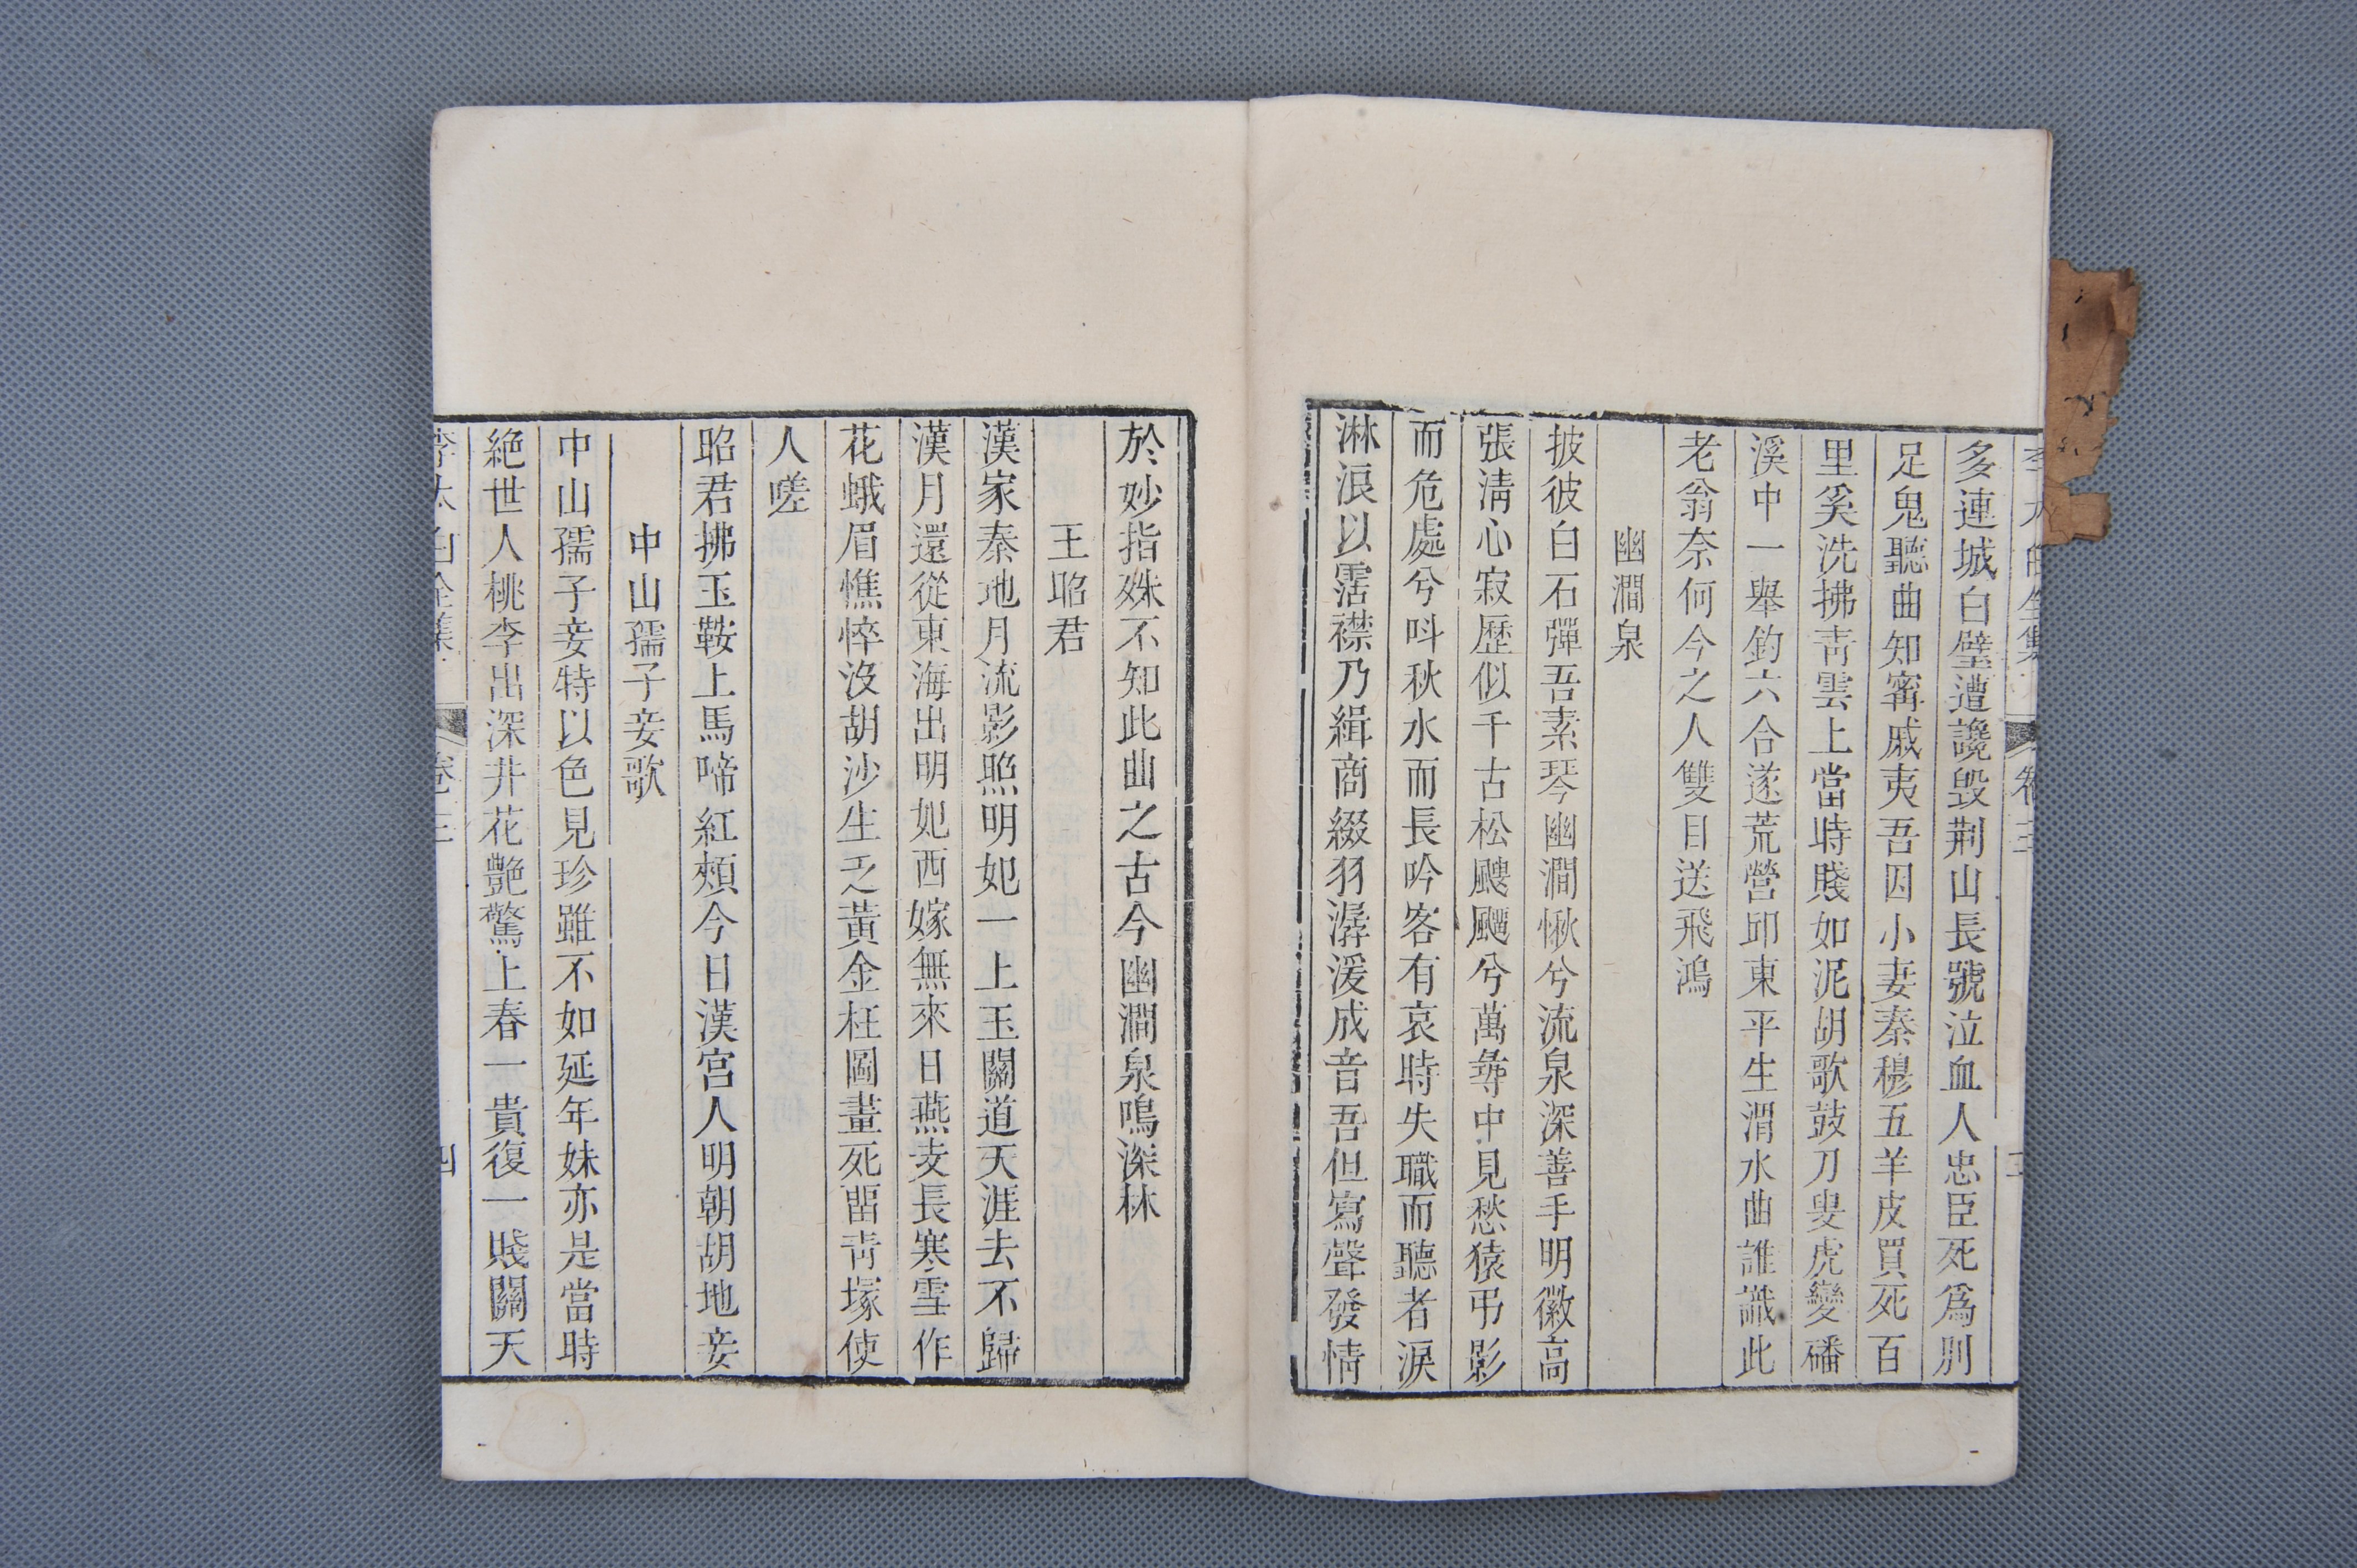 李太白全集 卷三
多連城白璧遭讒毀荆山長號泣血人忠臣死爲刖
足鬼聽曲知甯戚夷吾因小妻秦穆五羊皮買死百
里奚洗拂靑雲上當時賤如泥胡歌鼓刀叟虎變磻
溪中一舉釣六合遂荒營邱東平生渭水曲誰識此
老翁奈何今之人雙目送飛鴻
幽澗泉
拂彼白石彈吾素琴幽澗愀兮流泉深善手明徽高
張淸心寂歷似千古松颼飀兮萬尋中見愁猿弔影
而危處兮呌秋水而長吟客有哀時失職而聽者淚
淋浪以霑襟乃緝商綴羽潺湲成音吾但寫聲發情
於妙指殊不知此曲之古今幽澗泉鳴深林
王昭君
漢家秦地月流影照明妃一上玉關道天涯去不歸
漢月還從東海出明妃西嫁無來日燕支長寒雪作
花蛾眉憔悴沒胡沙生乏黃金枉圖畫死留靑塚使
人嗟
昭君拂玉鞍上馬啼紅頰今日漢宮人明朝胡地妾
中山孺子妾歌
中山孺子妾特以色見珍雖不如延年妹亦是當時
絶世人桃李出深井花艷驚上春一貴復一賤關天
李太白全集 卷三 四